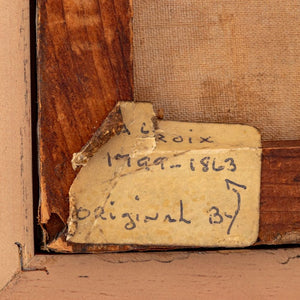 acroix
1799-1863
original By